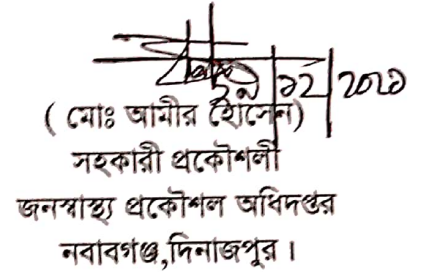 ( মোঃ আমীর হোসেন)
সহকারী প্রকৌশলী
জনস্বাস্থ্য প্রকৌশল অধিদপ্তর
নবাবগঞ্জ,দিনাজপুর ।